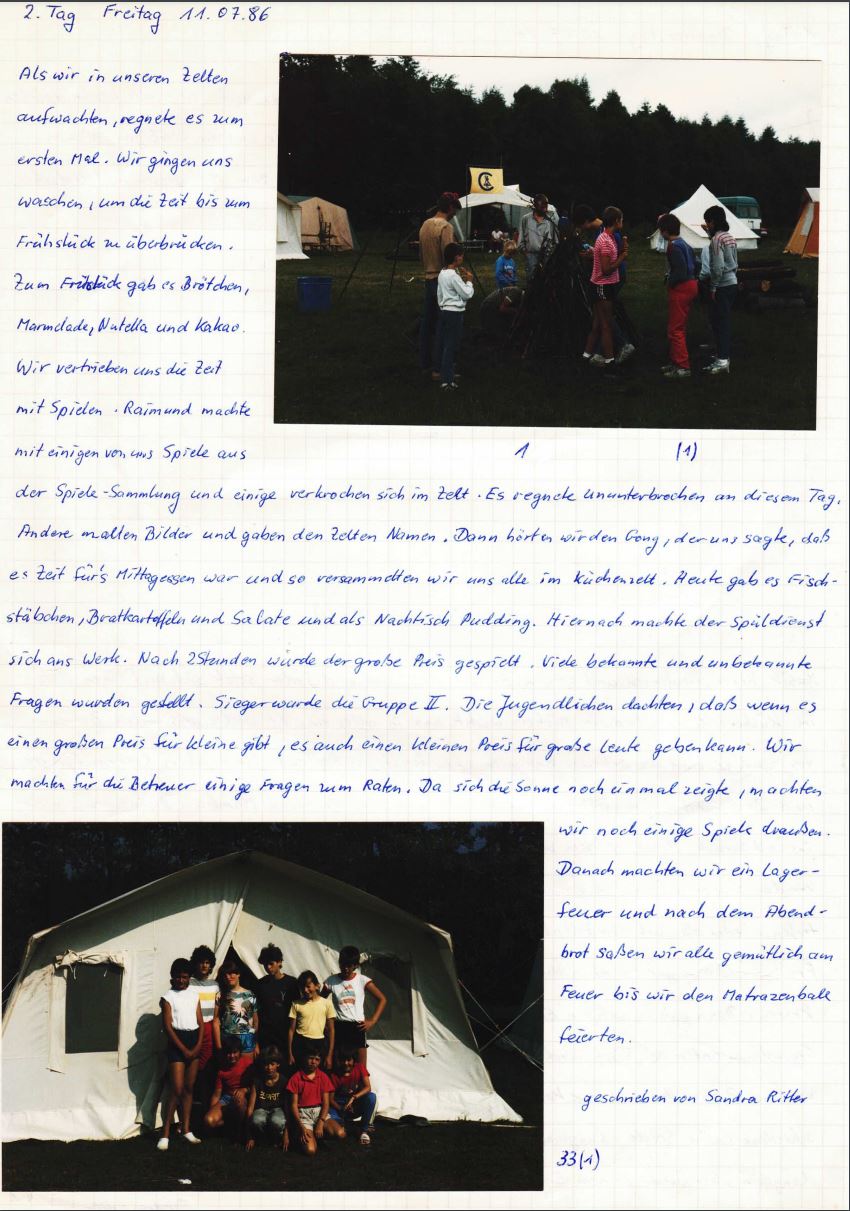 2. Tag Freitag 11.07.86
Als wir in unseren Zelten
aufwachten, regnete es zum
ersten Mal. Wir gingen uns
waschen, um die Zeit bis zum
Frühstück zu überbrücken.
Zum Frühstück gab es Brötchen,
Marmelade, Nutella und Kakao.
Wir vertrieben uns die Zeit
mit Spielen. Raimund machte
mit einigen von uns Spiele aus
1 (1)
der Spiele-Sammlung und einige verkrochen sich im Zelt. Es regnete ununterbrochen an diesem Tag.
Andere malten Bilder und gaben den Zelten Namen. Dann hörten wir den Gong, der uns sagte, daß
es Zeit für's Mittagessen war und so versammelten wir uns alle im Küchenzelt. Heute gab es Fisch-
stäbchen, Bratkartoffeln und Salate und als Nachtisch Pudding. Hiernach machte der Spüldienst
sich ans Werk. Nach 2 Stunden wurde der große Preis gespielt. Viele bekannte und unbekannte
Fragen wurden gestellt. Sieger wurde die Gruppe II. Die Jugendlichen dachten, daß wenn es
einen großen Preis für kleine gibt, es auch einen kleinen Preis für große Leute geben kann. Wir
machten für die Betreuer einige Fragen zum Raten. Da sich die Sonne noch einmal zeigte, machten
wir noch einige Spiele draußen.
Danach machten wir ein Lager-
feuer und nach dem Abend-
brot saßen wir alle gemütlich am
Feuer bis wir den Matrazenball
feierten.
geschrieben von Sandra Ritter
33(1)